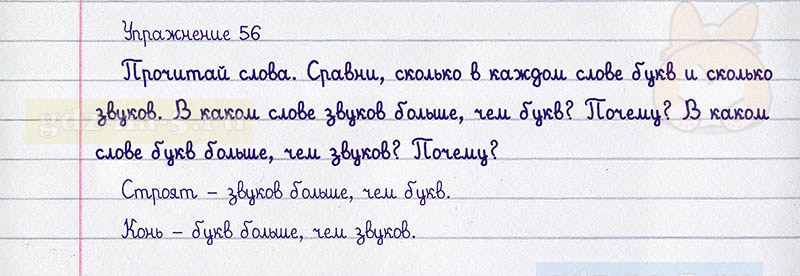 Упражнение 56
Прочитай слова. Сравни, сколько в каждом слове букв и сколько
звуков. В каком слове звуков больше, чем букв? Почему? В каком
слове букв больше, чем звуков? Почему?
Строят – звуков больше, чем букв.
Конь – букв больше, чем звуков.